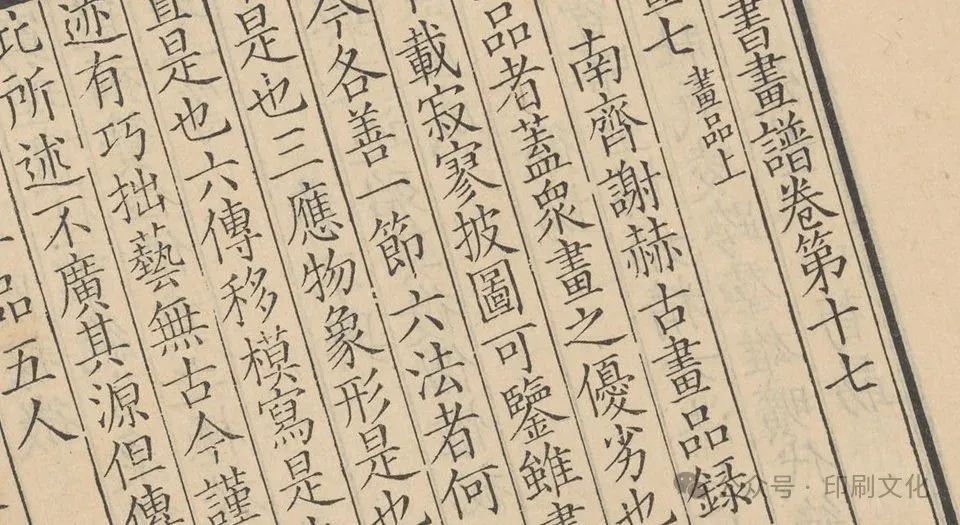 書畫譜卷第十七
畫七 畫品上
南齊謝赫古畫品錄
品者蓋衆畫之優劣也
載寂寥披圖可鑒雖畫
今各善一節六法者何
是也三應物象形是也
置是也六傳移模寫是
迹有巧拙藝無古今謹
此所述不廣其源但傳
品五人
公众号 · 印刷文化